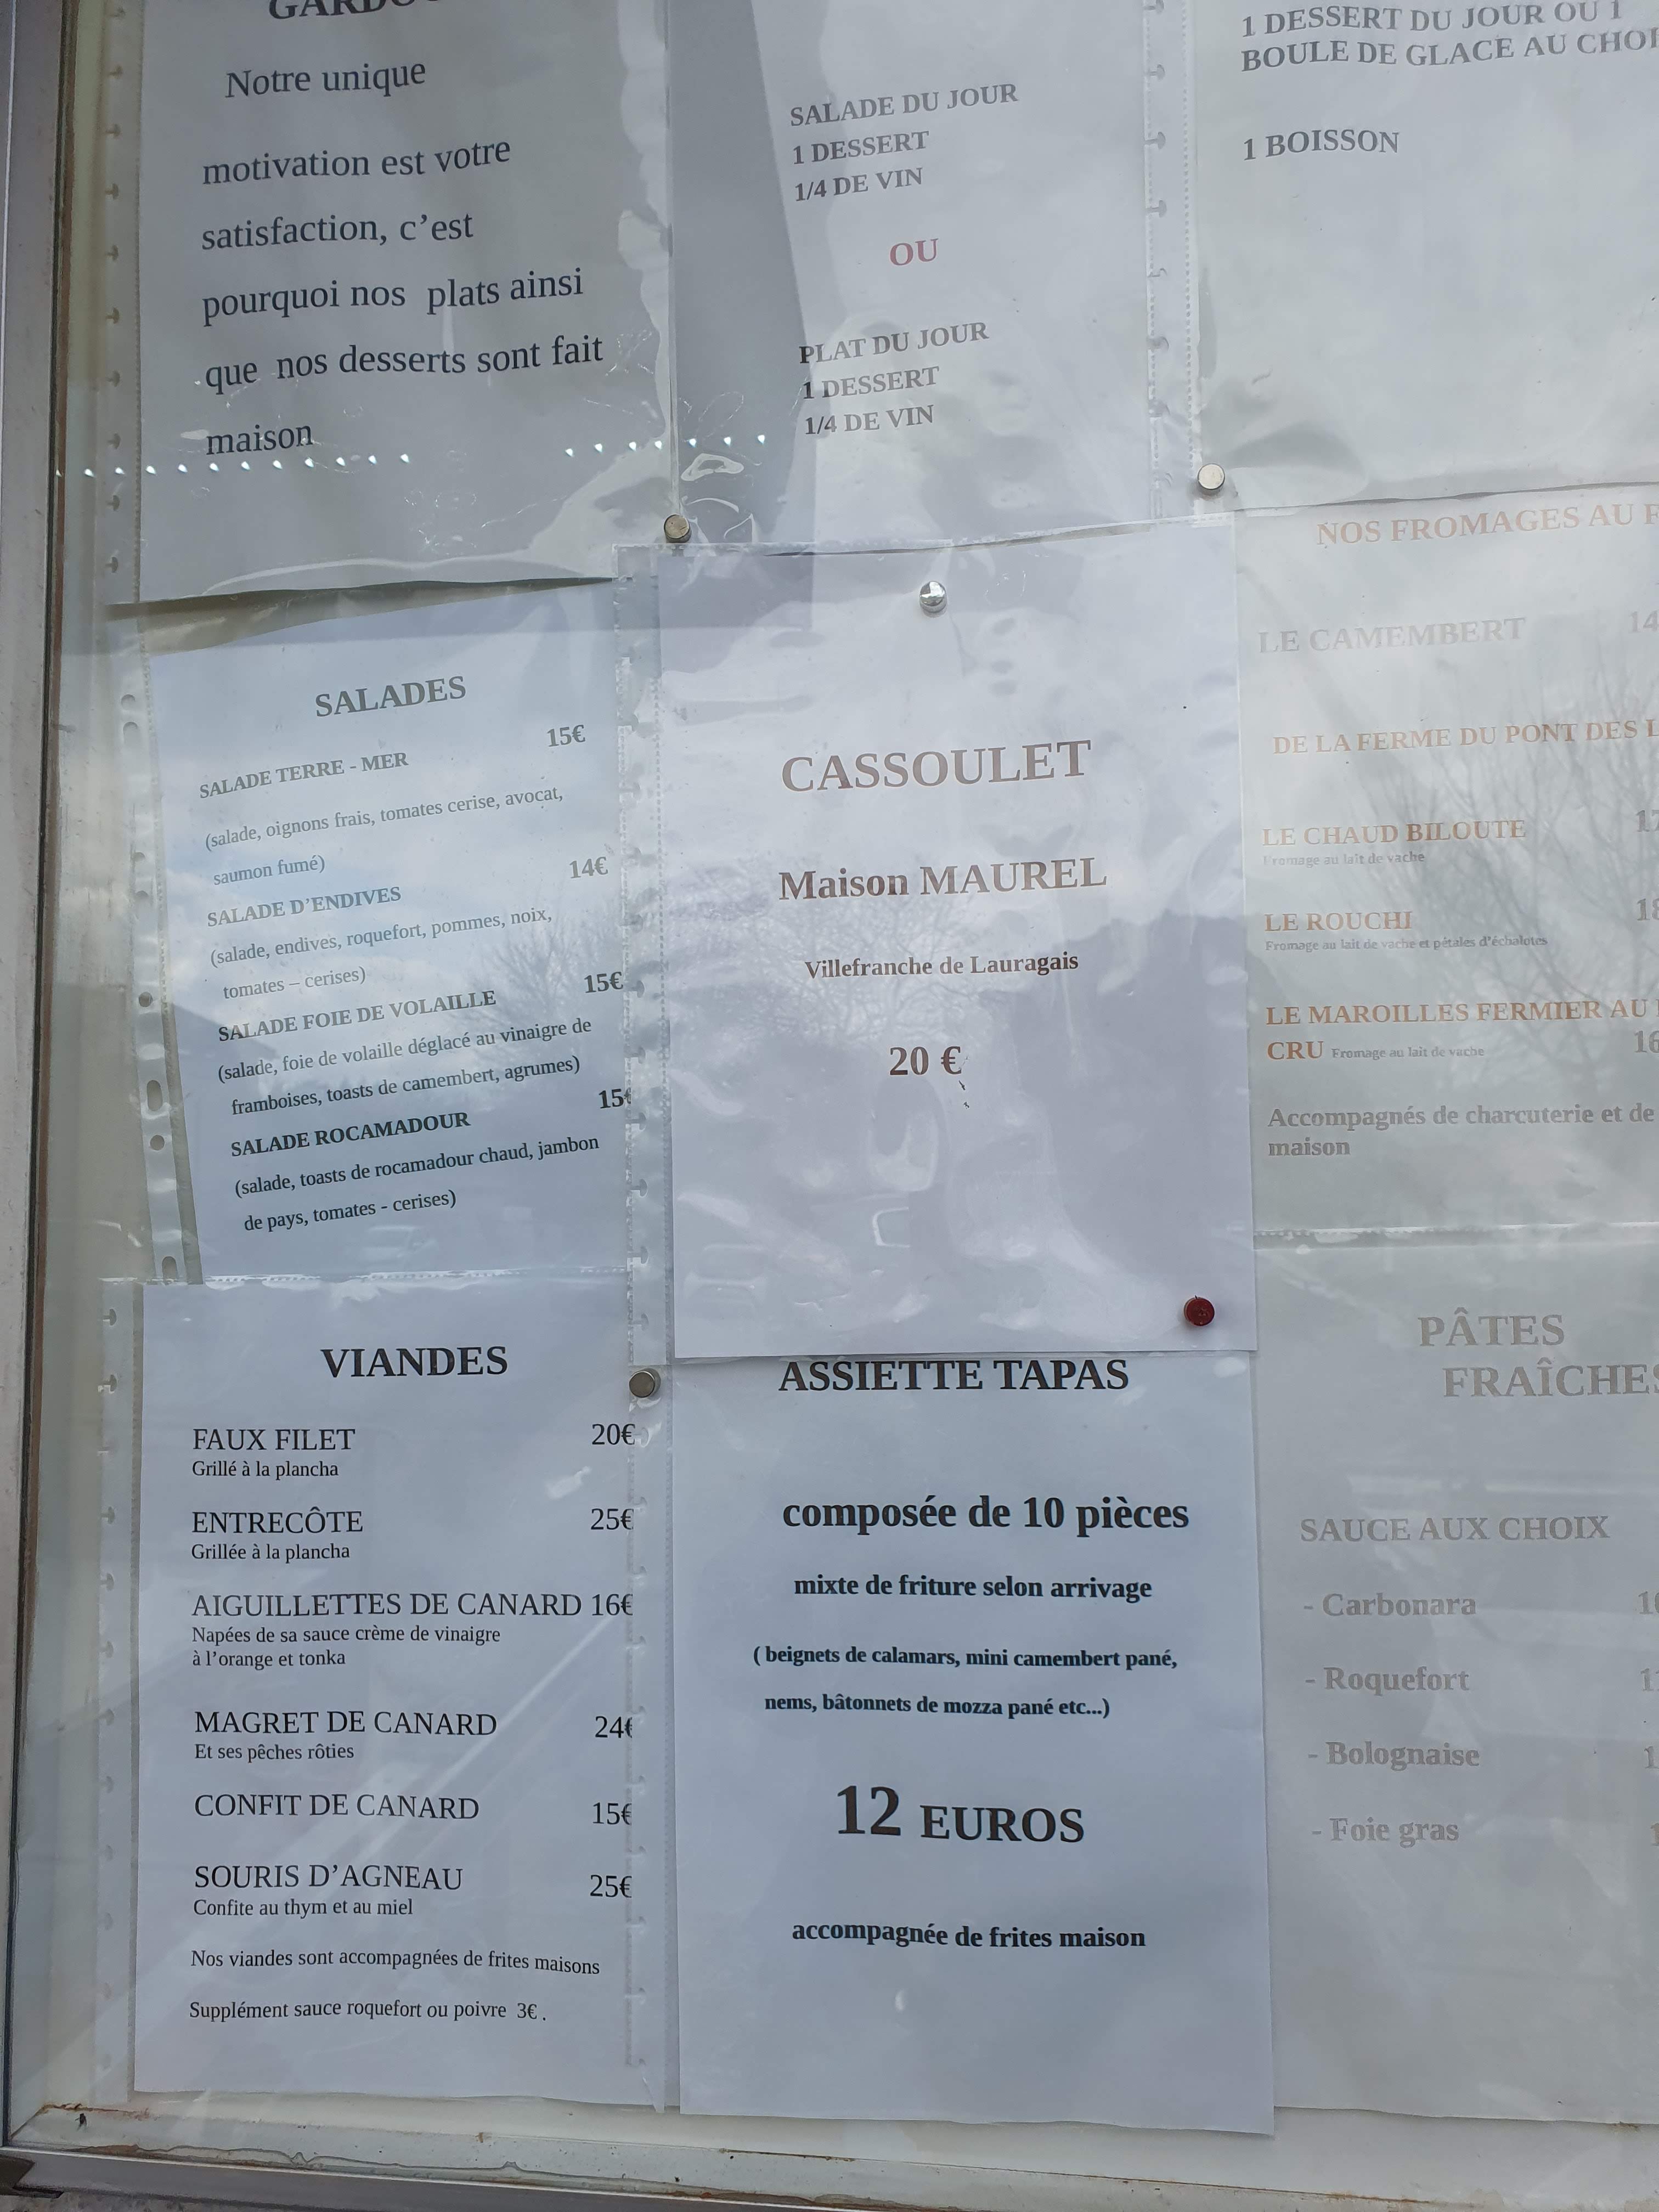 Notre unique
motivation est votre
satisfaction, c'est
pourquoi nos plats ainsi
que nos desserts sont fait
maison
SALADE DU JOUR
1 DESSERT
1/4 DE VIN
OU
PLAT DU JOUR
1 DESSERT
1/4 DE VIN
1 DESSERT DU JOUR OU 1
BOULE DE GLACE AU
1 BOISSON
SALADES
SALADE TERRE - MER 15€
(salade, oignons frais, tomates cerise, avocat,
saumon fumé)
SALADE D'ENDIVES 14€
(salade, endives, roquefort, pommes, noix,
tomates – cerises)
SALADE FOIE DE VOLAILLE 15€
(salade, foie de volaille déglacé au vinaigre de
framboises, toasts de camembert, agrumes)
SALADE ROCAMADOUR 15€
(salade, toasts de rocamadour chaud, jambon
de pays, tomates - cerises)
CASSOULET
Maison MAUREL
Villefranche de Lauragais
20 €
NOS FROMAGES AU
LE CAMEMBERT
DE LA FERME DU PONT DES
LE CHAUD BILOUTE
Fromage au lait de vache
LE ROUCHI
Fromage au lait de vache et pétales d'échalotes
LE MAROILLES FERMIER AU
CRU Fromage au lait de vache
Accompagnés de charcuterie et de
maison
VIANDES
FAUX FILET 20€
Grillé à la plancha
ENTRECÔTE 25€
Grillée à la plancha
AIGUILLETTES DE CANARD 16€
Napées de sa sauce crème de vinaigre
à l'orange et tonka
MAGRET DE CANARD 24€
Et ses pêches rôties
CONFIT DE CANARD 15€
SOURIS D'AGNEAU 25€
Confite au thym et au miel
Nos viandes sont accompagnées de frites maisons
Supplément sauce roquefort ou poivre 3€ .
ASSIETTE TAPAS
composée de 10 pièces
mixte de friture selon arrivage
( beignets de calamars, mini camembert pané,
nems, bâtonnets de mozza pané etc...)
12 EUROS
accompagnée de frites maison
PÂTES
FRAÎCHES
SAUCE AUX CHOIX
- Carbonara
- Roquefort
- Bolognaise
- Foie gras